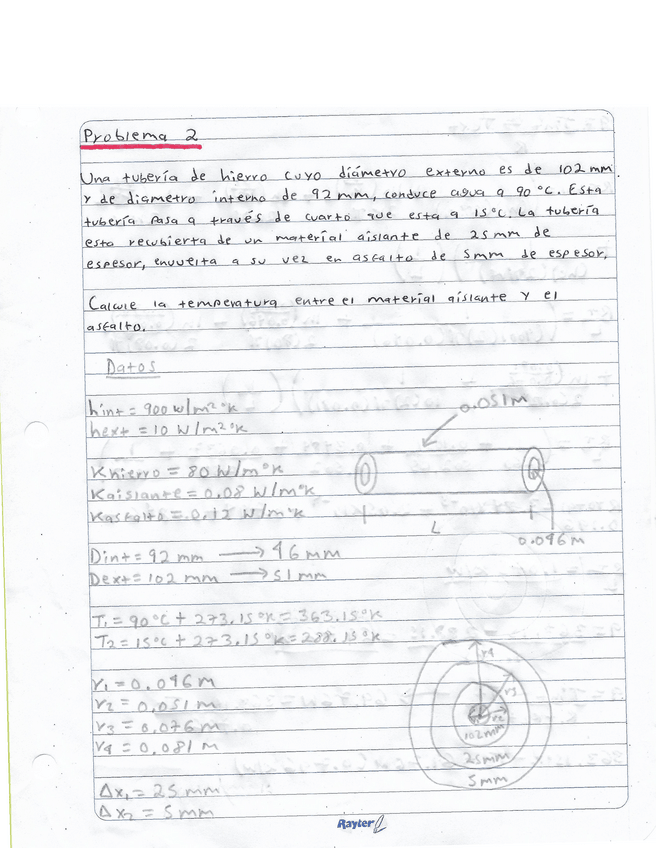 Problema 2
Una tubería de hierro cuyo diámetro externo es de 102 mm
y de diametro interno de 92 mm, conduce agua a 90 °C. Esta
tubería pasa a través de cuarto que esta a 15°C. La tubería
esta recubierta de un material aislante de 25 mm de
espesor, envuelta a su vez en asfalto de 5mm de espesor.
Calcule la temperatura entre el material aislante y el
asfalto.
Datos
hint = 900 W/m²°K
hext = 10 W/m²°K
0.051M
Khierro = 80 W/m°K
Kaislante = 0.08 W/m°K
Kasfalto = 0.12 W/m°K
L
0.046M
Dint = 92 mm → 46 mm
Dext = 102 mm → 51 mm
T1 = 90°C + 273.15°K = 363.15°K
T2 = 15°C + 273.15°K = 288.15°K
r1 = 0.046 M
r2 = 0.051 M
r3 = 0.076 M
r4 = 0.081 M
r4
r3
r2
102mm
25mm
5mm
Δx1 = 25 mm
Δx2 = 5 mm
Rayter